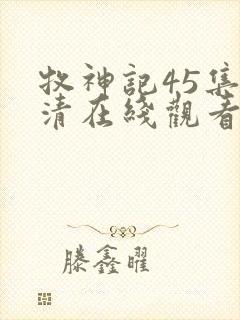 牧神記45集
清在綫觀看
滕鑫曜